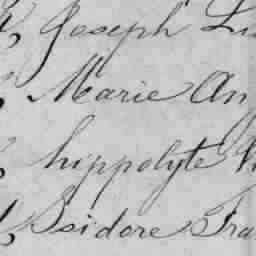 Joseph
Marie An
hippolyte
Isidore Fra